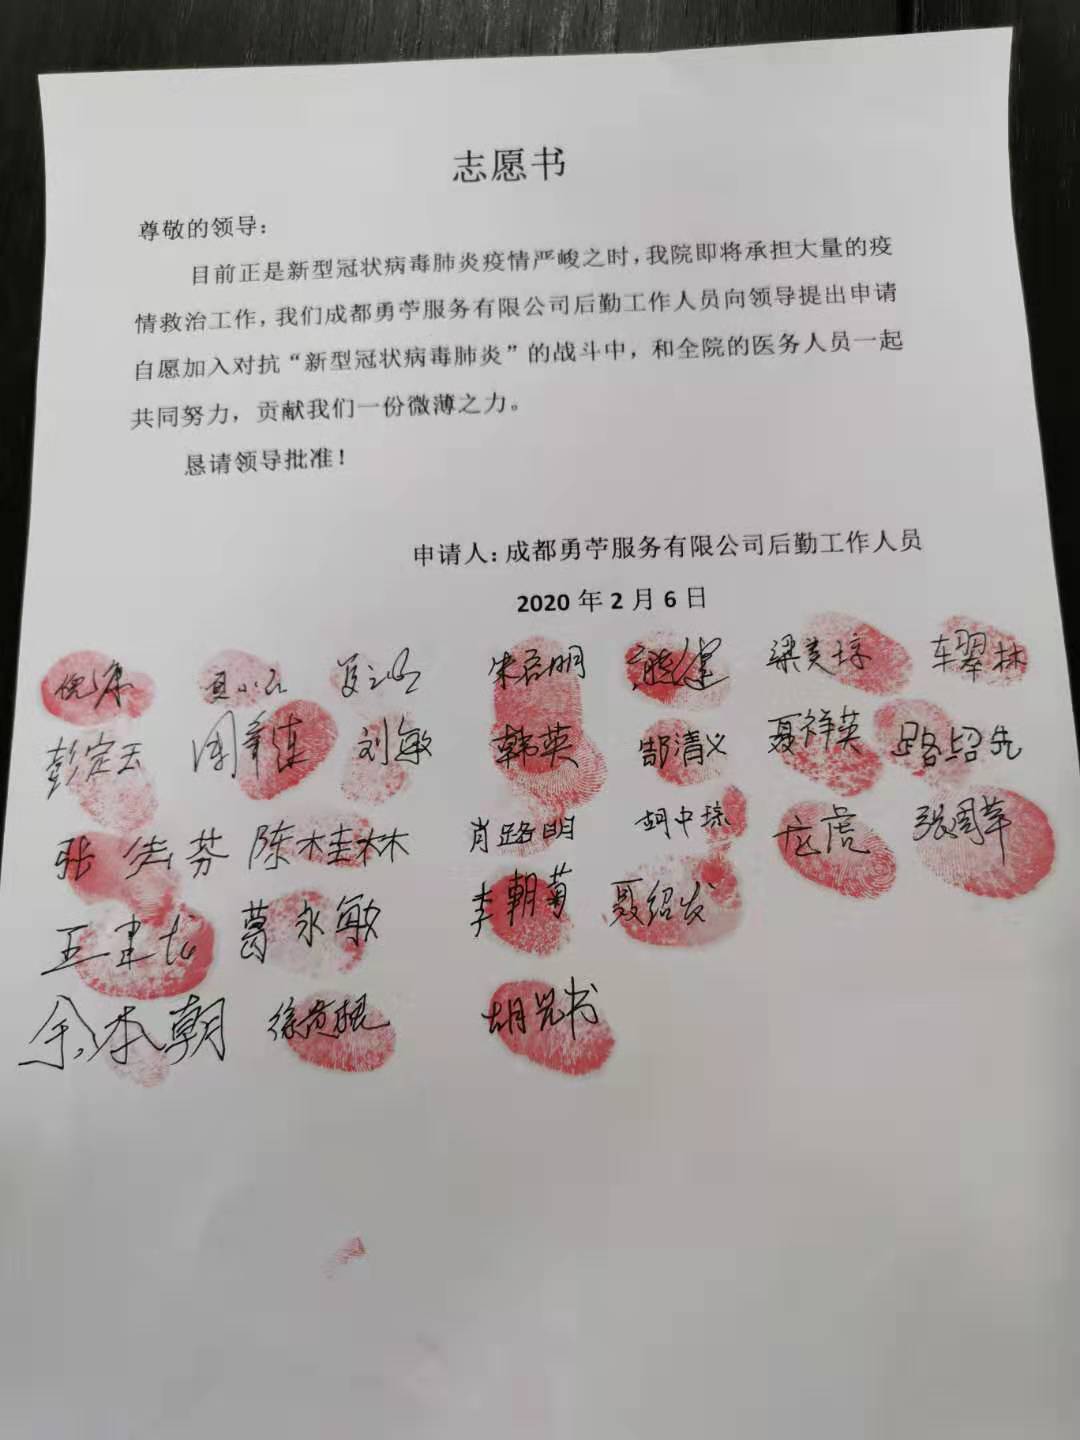 志愿书
尊敬的领导：
目前正是新型冠状病毒肺炎疫情严峻之时，我院即将承担大量的疫
情救治工作，我们成都勇苧服务有限公司后勤工作人员向领导提出申请
自愿加入对抗“新型冠状病毒肺炎”的战斗中，和全院的医务人员一起
共同努力，贡献我们一份微薄之力。
恳请领导批准！
申请人：成都勇苧服务有限公司后勤工作人员
2020 年 2 月 6 日
倪康 朱启明 熊健 梁美琼 车翠林
彭定玉 刘敏 韩英 郜清义 聂祥英 路绍先
张先芬 陈桂林 肖路明 胡中琼 庞虎 张周苹
葛永敏 李朝菊 聂绍发
余本朝